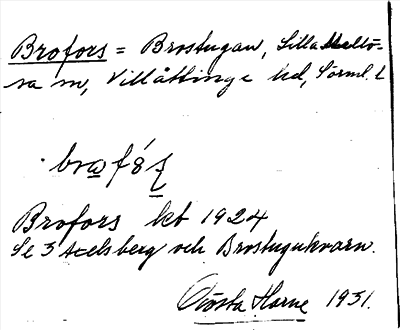 Brofors = Brostugan, Lilla Mellö-
sa sn, Villåttinge hd, Sörml. l
Brofors kbt 1924
Se 3 Axelsberg och Brostugukvarn.
Gösta Harne 1931.